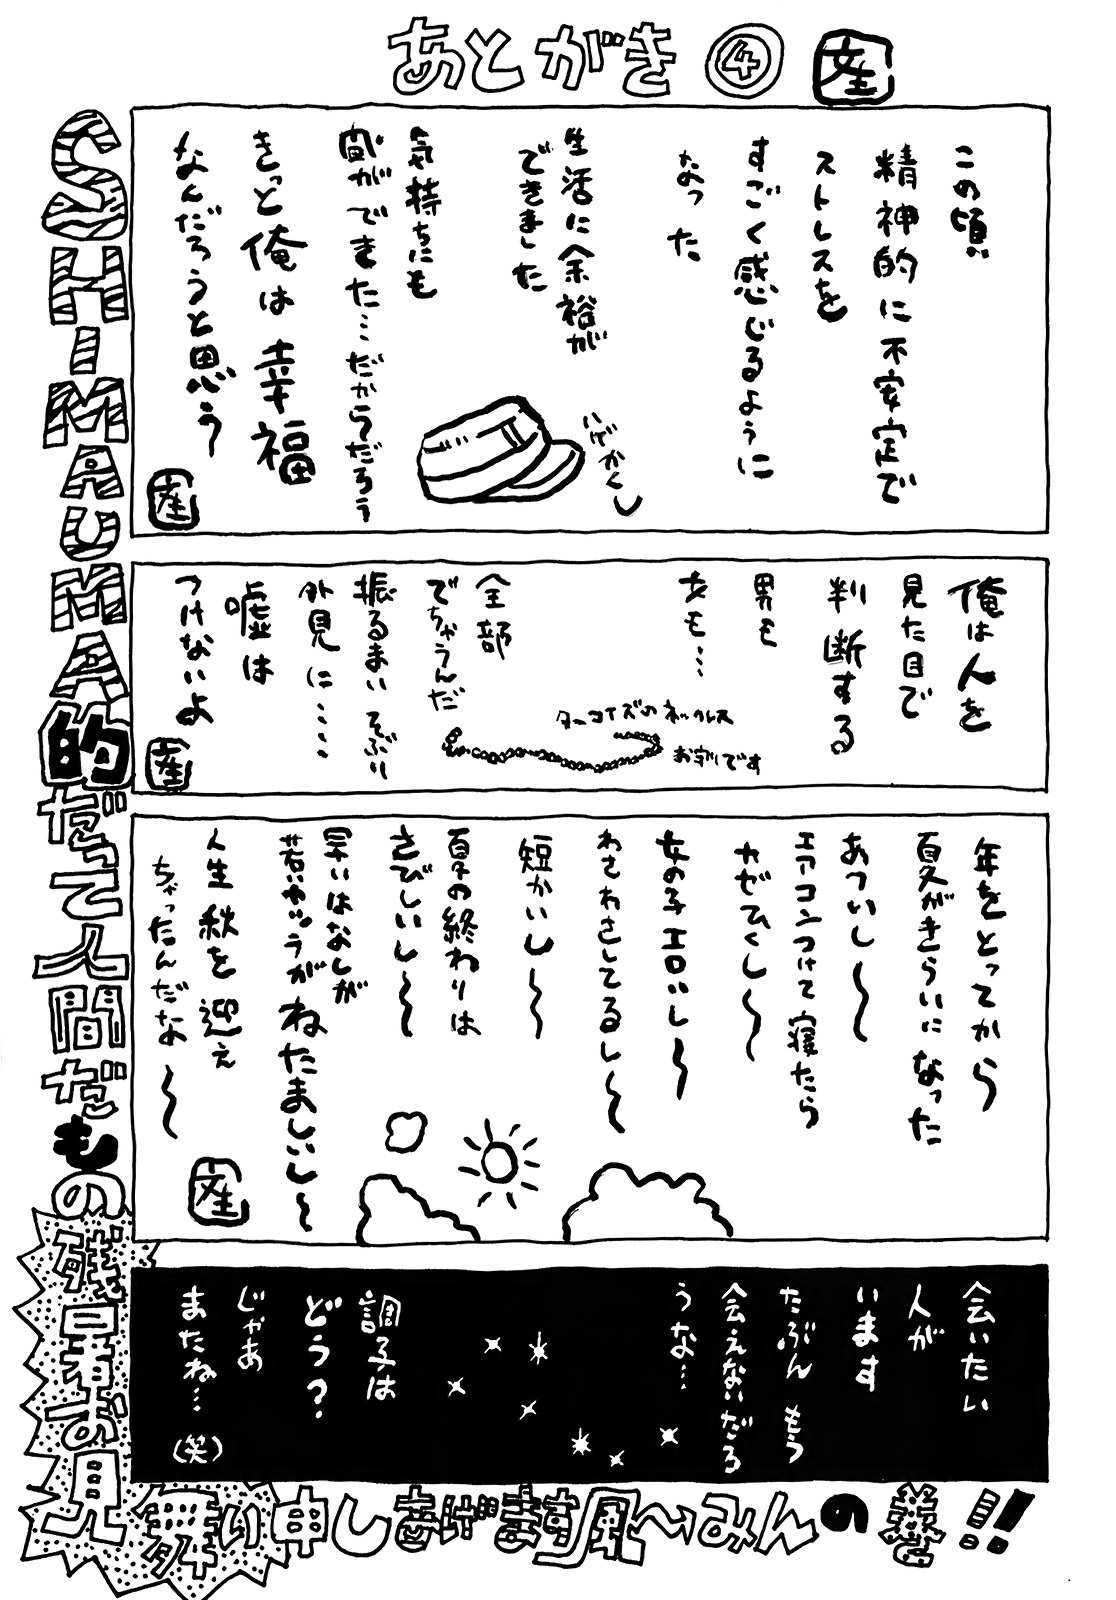 あとがき ④
この頃
精神的に不安定で
ストレスを
すごく感じるように
なった
生活に余裕が
できました
気持ちにも
余裕ができました…だからだろう
きっと俺は幸福
なんだろうと思う
俺は人を
見た目で
判断する
男も
女も…
全部
でちゃうんだ
振るまい そぶり
外見に……
嘘は
つけないよ
ターコイズのネックレス
お守りです
年をとってから
夏がきらいになった
あついし〜
エアコンつけて寝たら
カゼひくし〜
女の子エロいし〜
わさわさしてるし〜
短かいし〜
夏の終わりは
さびしいし〜
早いはなしが
若いヤツらがねたましいし〜
人生秋を迎え
ちゃったんだな〜
会いたい
人が
います
たぶん もう
会えないだろ
うな…
調子は
どう？
じゃあ
またね…(笑)
SHIMAUMA的だって人間だもの残暑お見
舞い申しあげます風〜みんの巻!!